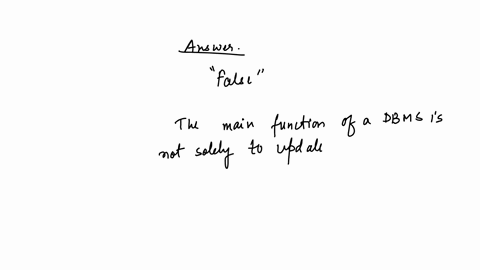 Answer.
"False"
The main function of a DBMS is
not solely to update